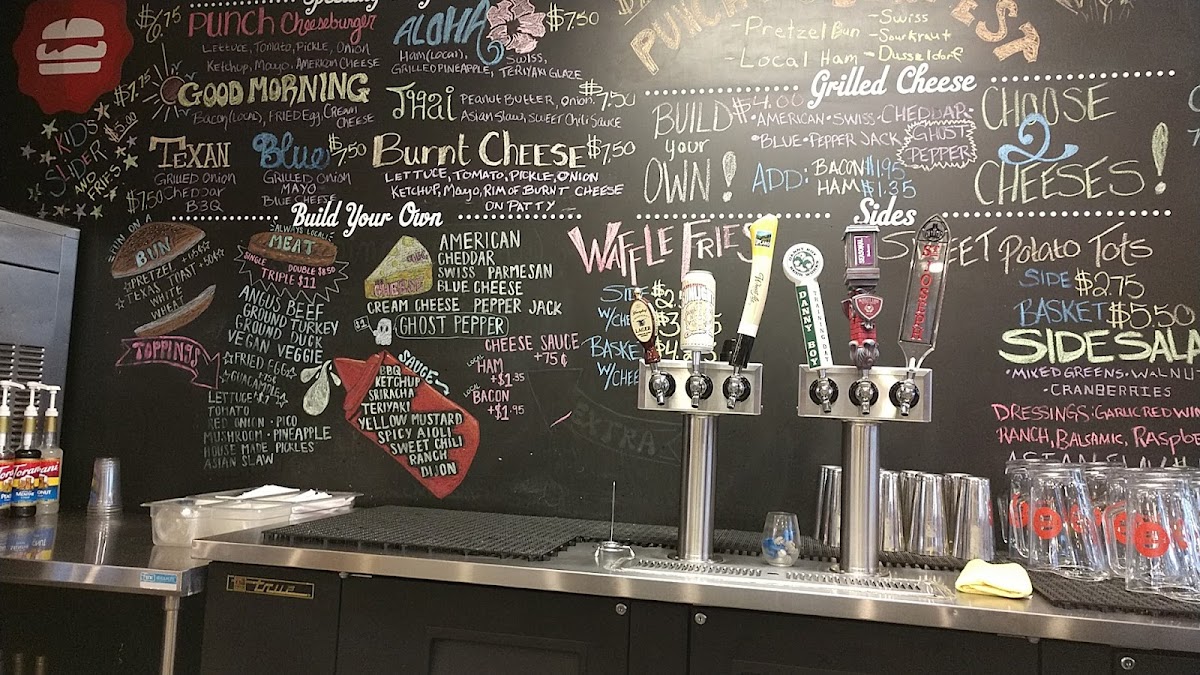 $6.75
PUNCH Cheeseburger
Lettuce, Tomato, Pickle, Onion
Ketchup, Mayo, American Cheese
ALOHA $7.50
Ham (Local), Swiss,
Grilled Pineapple, Teriyaki Glaze
$7.75 GOOD MORNING
Bacon (Local), Fried Egg, Cream
Cheese
Peanut Butter, Onion, $7.50
Asian Slaw, Sweet Chili Sauce
KIDS $5.00
SLIDER
AND
FRIES
TEXAN
Grilled Onion
$7.50 Cheddar
B3Q
Blue $7.50
Grilled Onion
MAYO
Blue Cheese
Burnt CHEESE $7.50
LETTUCE, TOMATO, PICKLE, ONION
KETCHUP, MAYO, RIM OF BURNT CHEESE
ON PATTY
PUNCH
-Pretzel Bun
-Local Ham
-Swiss
-Sourkraut
-Dusseldorf
Grilled Cheese
BUILD
your
OWN!
$4.00
•AMERICAN•SWISS•CHEDDAR
•BLUE•PEPPER JACK
GHOST
PEPPER
ADD: BACON $1.95
HAM $1.35
CHOOSE
2
CHEESES!
Build Your Own
BUN
PRETZEL +65¢
TEXAS TOAST +50¢
WHITE
WHEAT
ALWAYS LOCAL!
MEAT
SINGLE DOUBLE $8.50
TRIPLE $11
ANGUS BEEF
GROUND TURKEY
GROUND DUCK
VEGAN VEGGIE
CHEESE
AMERICAN
CHEDDAR
SWISS PARMESAN
BLUE CHEESE
CREAM CHEESE PEPPER JACK
$1 GHOST PEPPER
CHEESE SAUCE
+75¢
LOCAL HAM
+$1.35
LOCAL BACON
+$1.95
TOPPINGS
FRIED EGG
GUACAMOLE
LETTUCE
TOMATO
RED ONION • PICO
MUSHROOM • PINEAPPLE
HOUSE MADE PICKLES
ASIAN SLAW
SAUCE
BBQ
KETCHUP
SRIRACHA
TERIYAKI
YELLOW MUSTARD
SPICY AIOLI
SWEET CHILI
RANCH
DIJON
EXTRA
Sides
WAFFLE FRIES
BASKE
SWEET Potato Tots
SIDE $2.75
BASKET $5.50
SIDE SALA
•MIXED GREENS•WALNUT
•CRANBERRIES
DRESSINGS: GARLIC RED WIN
RANCH, BALSAMIC, RASPBE
LAGER
DANNY
BOY
Torani
True